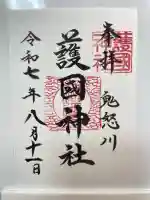 奉拝
鬼怒川
護國神社
令和七年八月十一日